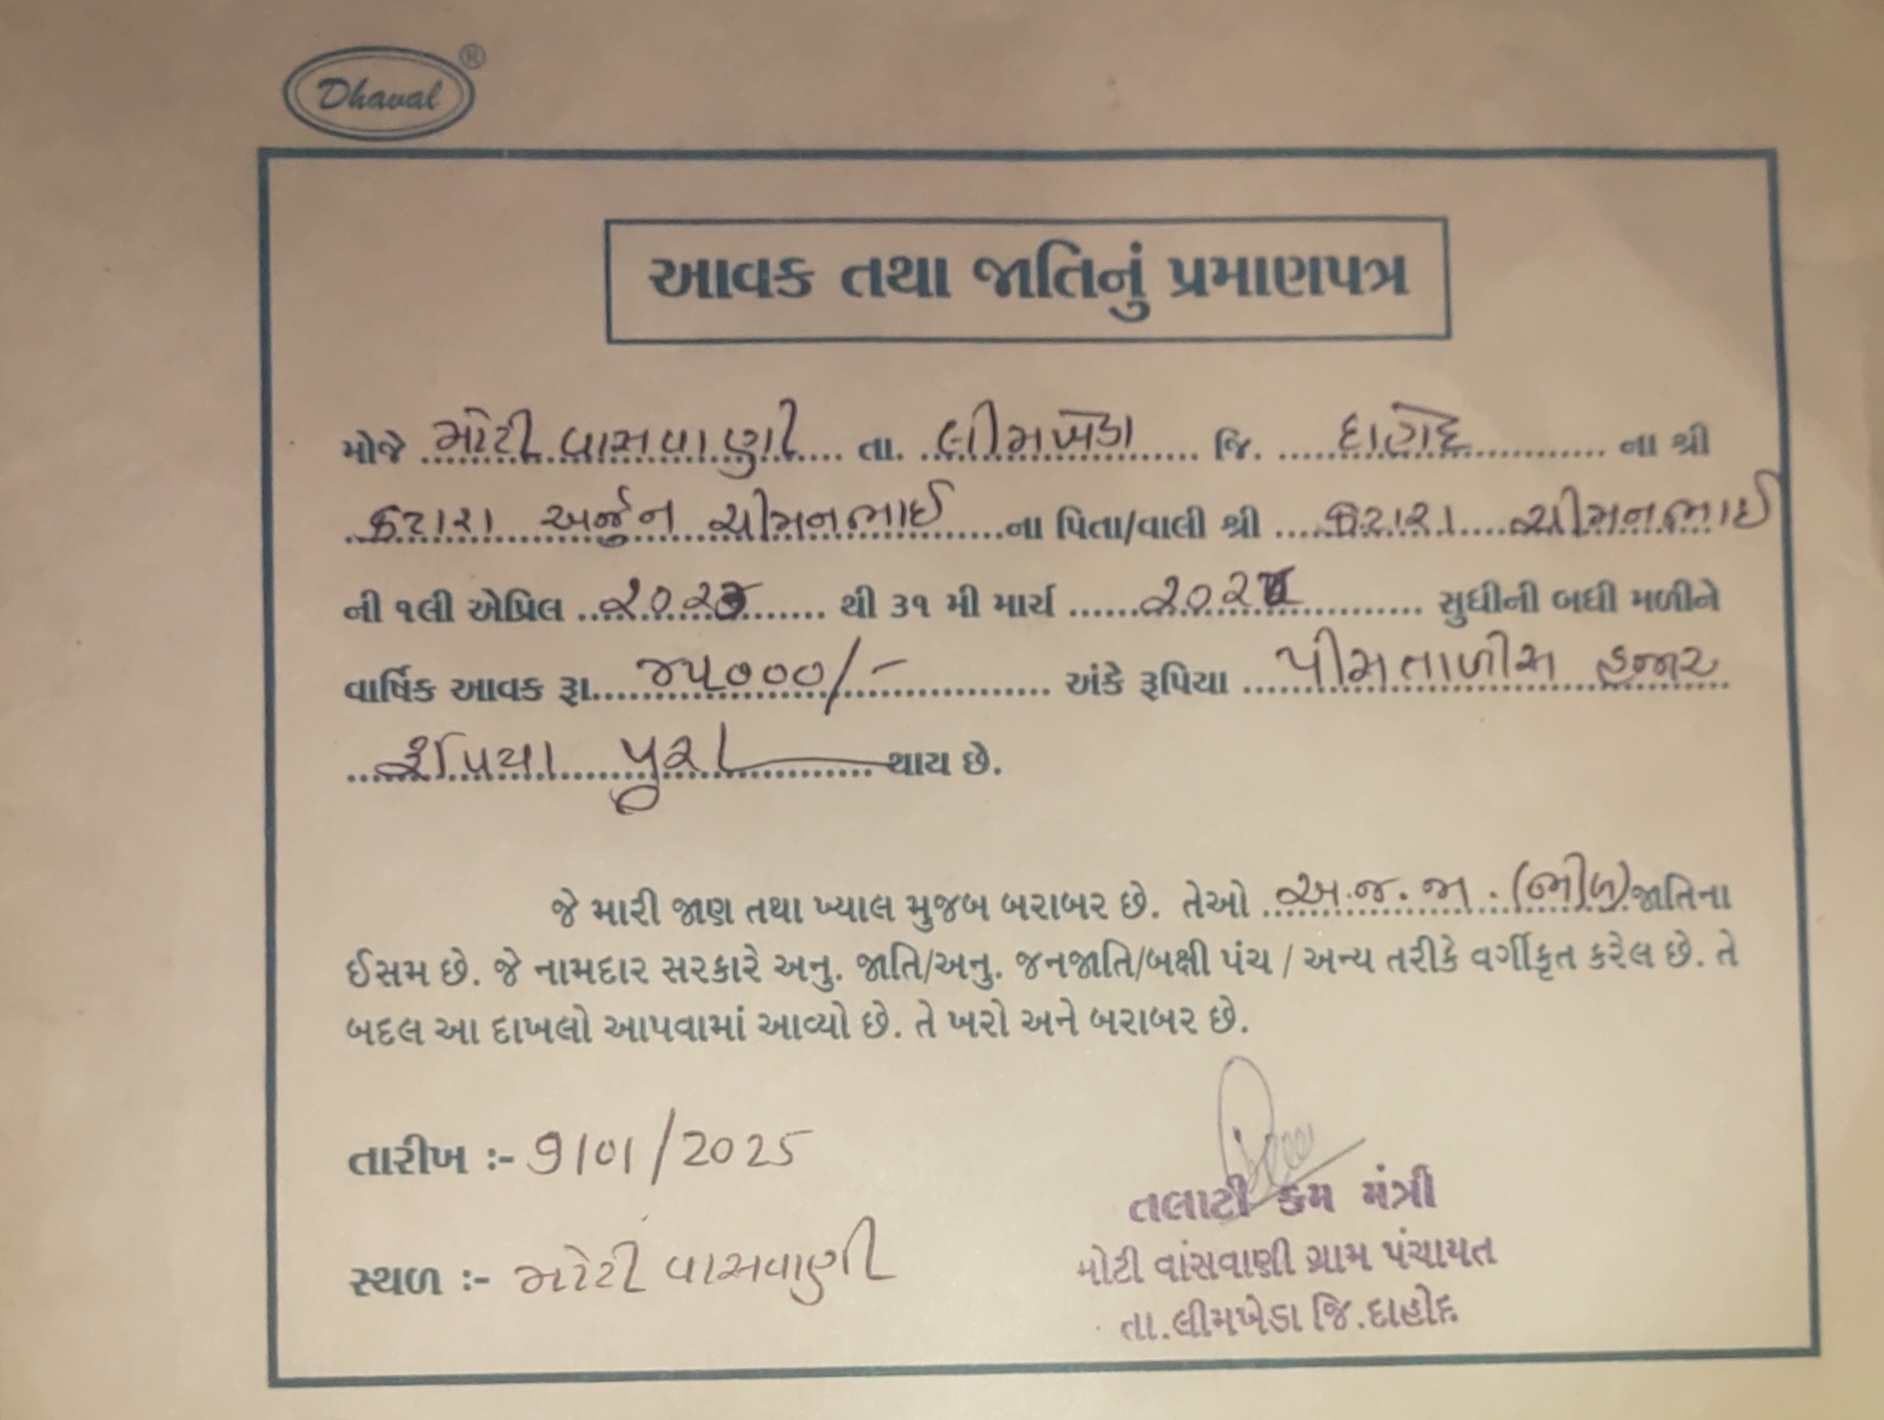 Dhaval ®
આવક તથા જાતિનું પ્રમાણપત્ર
મોજે મોટી વાસવાણી તા. લીમખેડા જિ. દાહોદ ના શ્રી
કટારા અર્જુન ચીમનભાઈ ના પિતા/વાલી શ્રી કટારા ચીમનભાઈ
ની ૧લી એપ્રિલ થી ૩૧ મી માર્ચ સુધીની બધી મળીને
વાર્ષિક આવક રૂા. ૪૫૦૦૦/- અંકે રૂપિયા પીસતાળીસ હજાર
રૂપિયા પુરા થાય છે.
જે મારી જાણ તથા ખ્યાલ મુજબ બરાબર છે. તેઓ અ.જ.જા. (ભીલ) જાતિના
ઈસમ છે. જે નામદાર સરકારે અનુ. જાતિ/અનુ. જનજાતિ/બક્ષી પંચ / અન્ય તરીકે વર્ગીકૃત કરેલ છે. તે
બદલ આ દાખલો આપવામાં આવ્યો છે. તે ખરો અને બરાબર છે.
તારીખ :- 9/01/2025
સ્થળ :- મોટી વાસવાણી
તલાટી કમ મંત્રી
મોટી વાંસવાણી ગ્રામ પંચાયત
તા.લીમખેડા જિ.દાહોદ